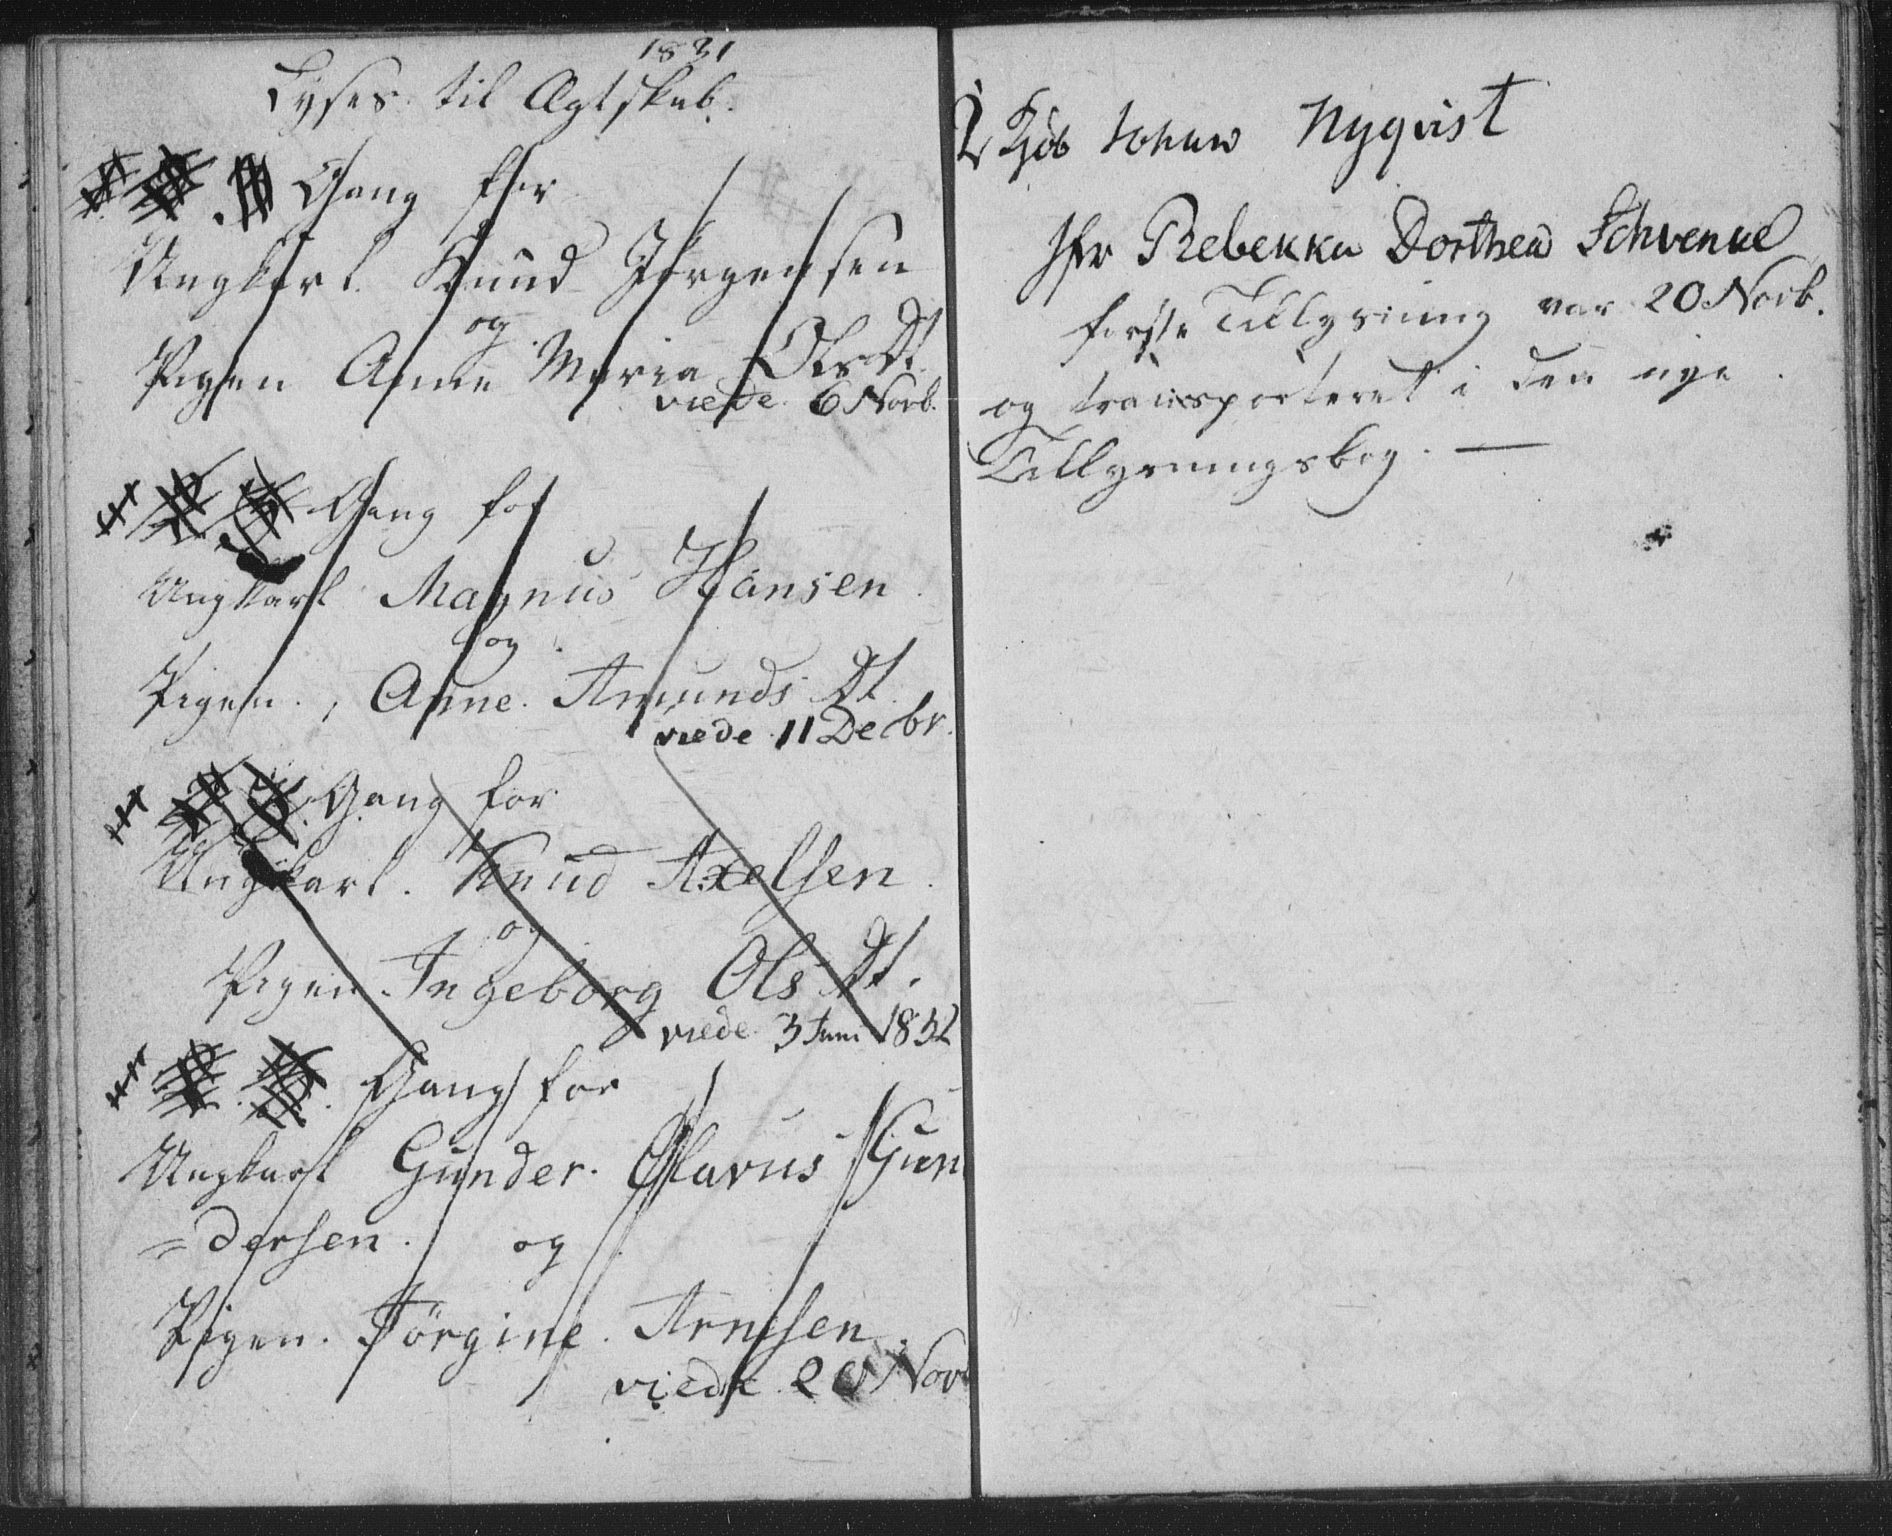 1831
Lyses til Ægtskab.
Gang for
Ungkarl Knud Jørgensen
og
Pigen Anne Maria OlsDt
viede 6 Novb.
Gang for
Ungkarl Magnus Hansen
og
Pigen Anne Amunds Dt
viede 11 Decbr.
Gang for
Ungkarl. Knud Axelsen
og
Pigen Ingeborg Ols Dt.
viede 3 Juni 1832
Gang for
Ungkarl Gunder Olavus Gun
=dersen. og
Pigen. Jörgine Arnesen
viede 20 Nov
Kjöb Johan Nyqvist
Jfr Rebekka Dorthea Schvenke
første Tillysning var 20 Novb.
og transporteret i den nye
Tillysningsbog. —